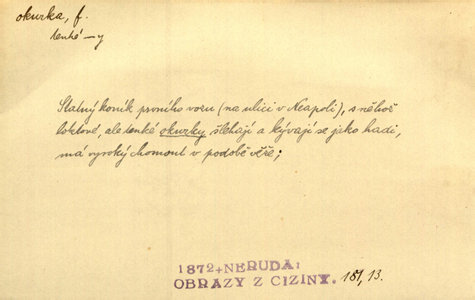 okurka, f.
tenké –y
Statný koník prvního vozu (na ulici v Neapoli), s něhož
loktové, ale tenké okurky šlehají a kývají se jako hadi,
má vysoký chomout v podobě věže;
1872+NERUDA:
OBRAZY Z CIZINY. 181, 13.